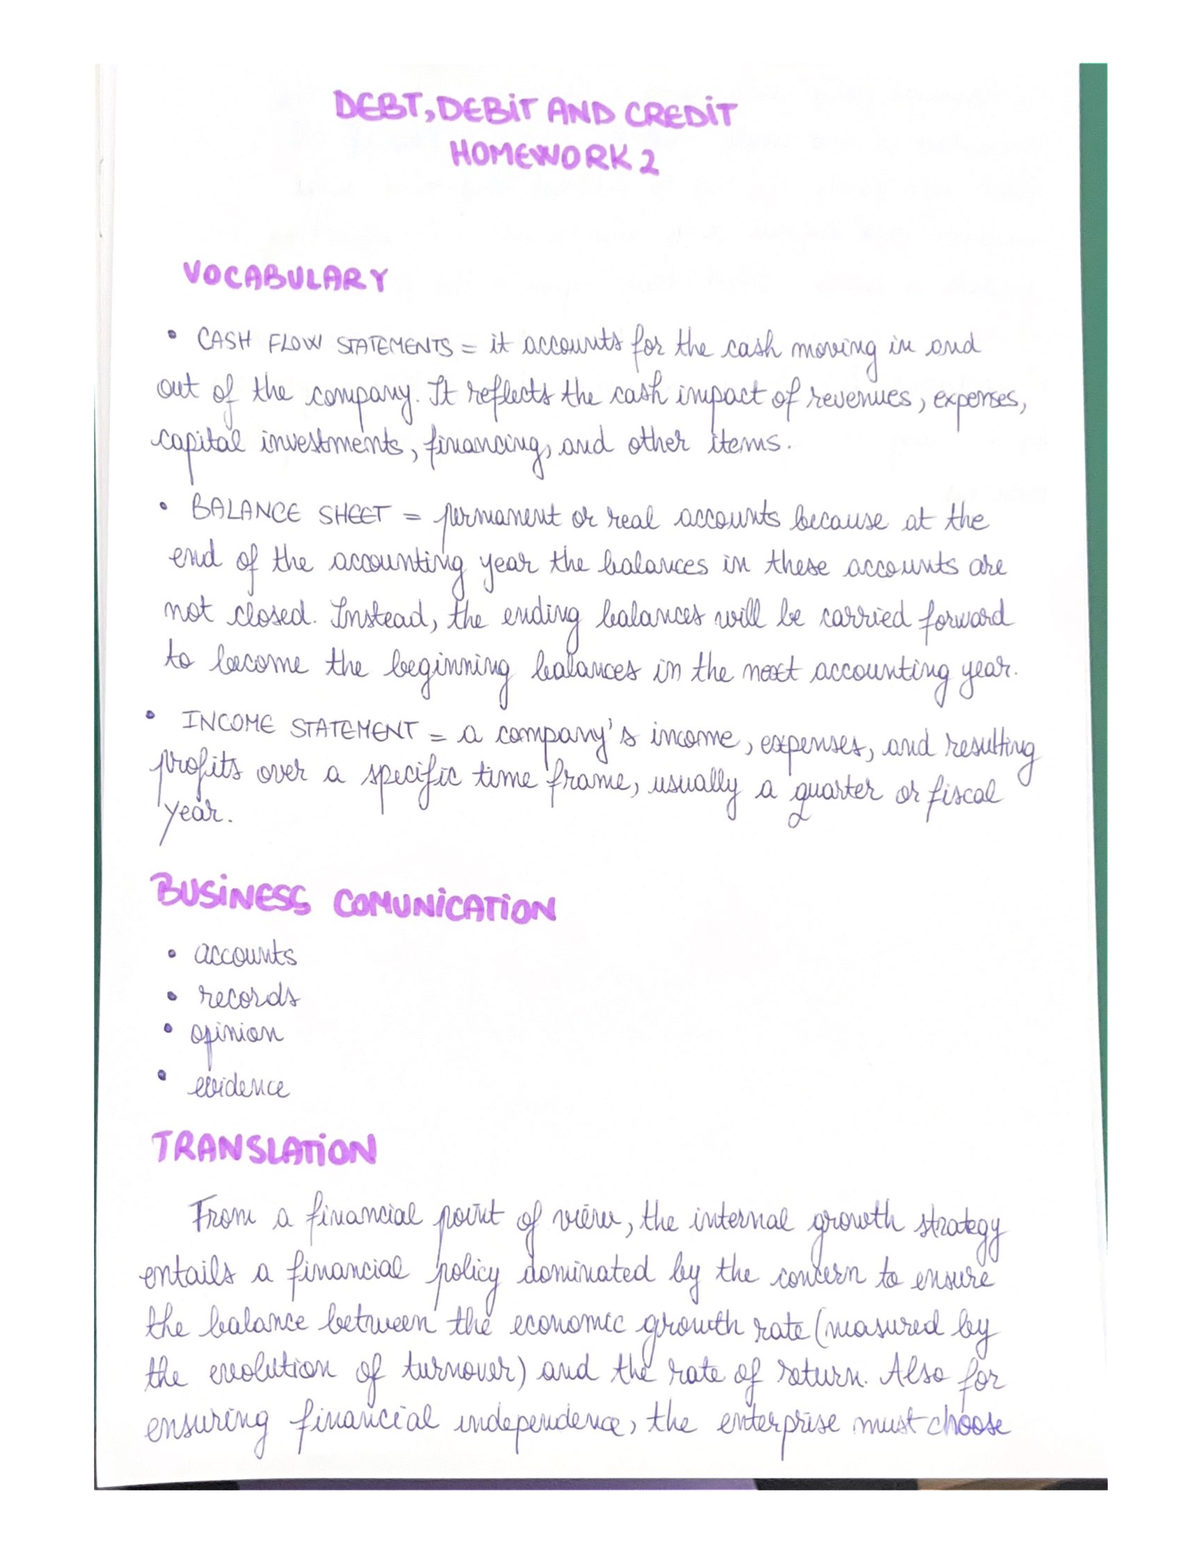 DEBT, DEBIT AND CREDIT
HOMEWORK 2
VOCABULARY
• CASH FLOW STATEMENTS = it accounts for the cash moving in and
out of the company. It reflects the cash impact of revenues, expenses,
capital investments, financing, and other items.
• BALANCE SHEET = permanent or real accounts because at the
end of the accounting year the balances in these accounts are
not closed. Instead, the ending balances will be carried forward
to become the beginning balances in the next accounting year.
• INCOME STATEMENT = a company's income, expenses, and resulting
profits over a specific time frame, usually a quarter or fiscal
year.
BUSINESS COMUNICATION
• accounts
• records
• opinion
• evidence
TRANSLATION
From a financial point of view, the internal growth strategy
entails a financial policy dominated by the concern to ensure
the balance between the economic growth rate (measured by
the evolution of turnover) and the rate of return. Also for
ensuring financial independence, the enterprise must choose